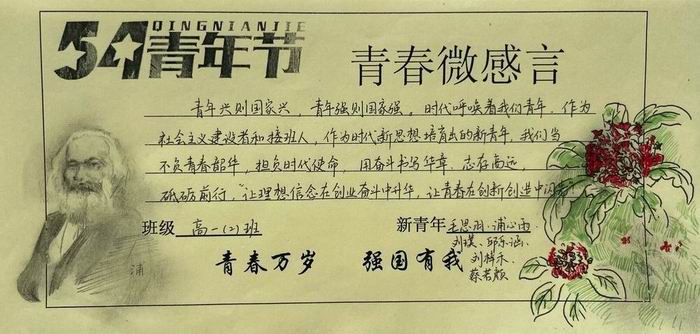 QINGNIANJIE
54青年节
青春微感言
青年兴则国家兴，青年强则国家强。时代呼唤着我们青年，作为
社会主义建设者和接班人，作为时代新思想培育出的新青年，我们当
不负青春韶华，担负时代使命，用奋斗书写华章，志存高远，
砥砺前行，“让理想信念在创业奋斗中升华，让青春在创新创造中闪
班级 高一(2)班
新青年 毛思羽、浦心雨
刘璞、邱乐涵、
刘梓禾、
蔡若颜
青春万岁 强国有我
浦